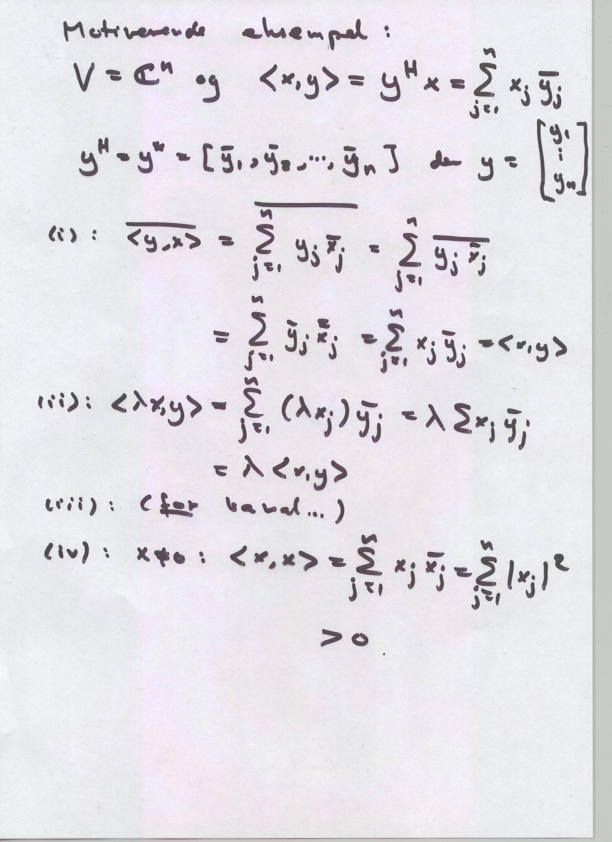 Motiverende eksempel :
V = ℂⁿ og <x,y> = yᴴ x = ∑_{j=1}^{n} x_j ȳ_j
yᴴ = y* = [ȳ₁, ȳ₂, ..., ȳₙ] da y = [y₁ ⋮ yₙ]
(i) : \overline{<y,x>} = \overline{∑_{j=1}^{n} y_j x̄_j} = ∑_{j=1}^{n} \overline{y_j x̄_j}
= ∑_{j=1}^{n} ȳ_j \bar{\bar{x}}_j = ∑_{j=1}^{n} x_j ȳ_j = <x,y>
(ii) : <λx,y> = ∑_{j=1}^{n} (λx_j) ȳ_j = λ ∑ x_j ȳ_j
= λ <x,y>
(iii) : (for banal...)
(iv) : x≠0 : <x,x> = ∑_{j=1}^{n} x_j x̄_j = ∑_{j=1}^{n} |x_j|²
> 0